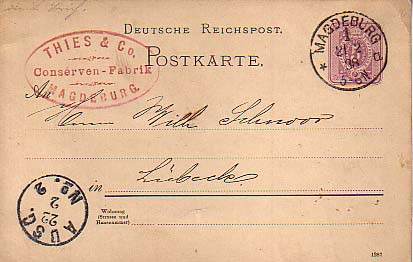 DEUTSCHE REICHSPOST.
POSTKARTE.
THIES & Co.
Conserven-Fabrik
MAGDEBURG.
MAGDEBURG
1
d
5-6N
An
Herrn Wilh Schnoor
in Lübeck.
Wohnung
(Strasse und
Hausnummer)
AUSG.
No. 2.
22
2
1287